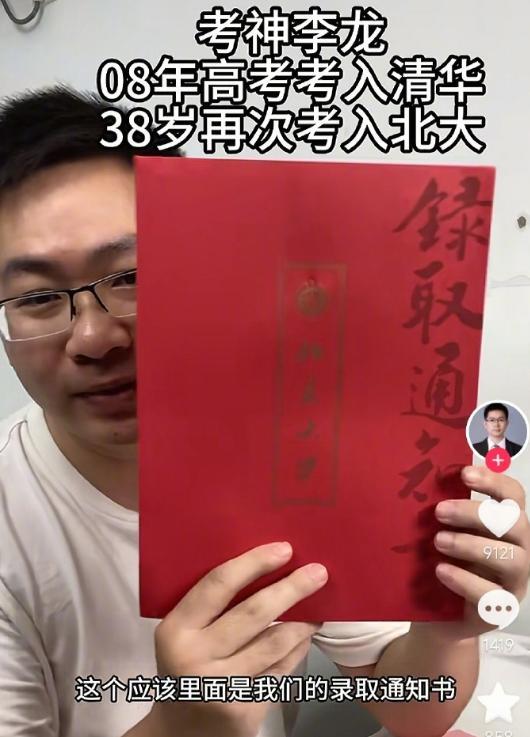 考神李龙
08年高考考入清华
38岁再次考入北大
录取通知
北京大学
9121
1419
这个应该里面是我们的录取通知书